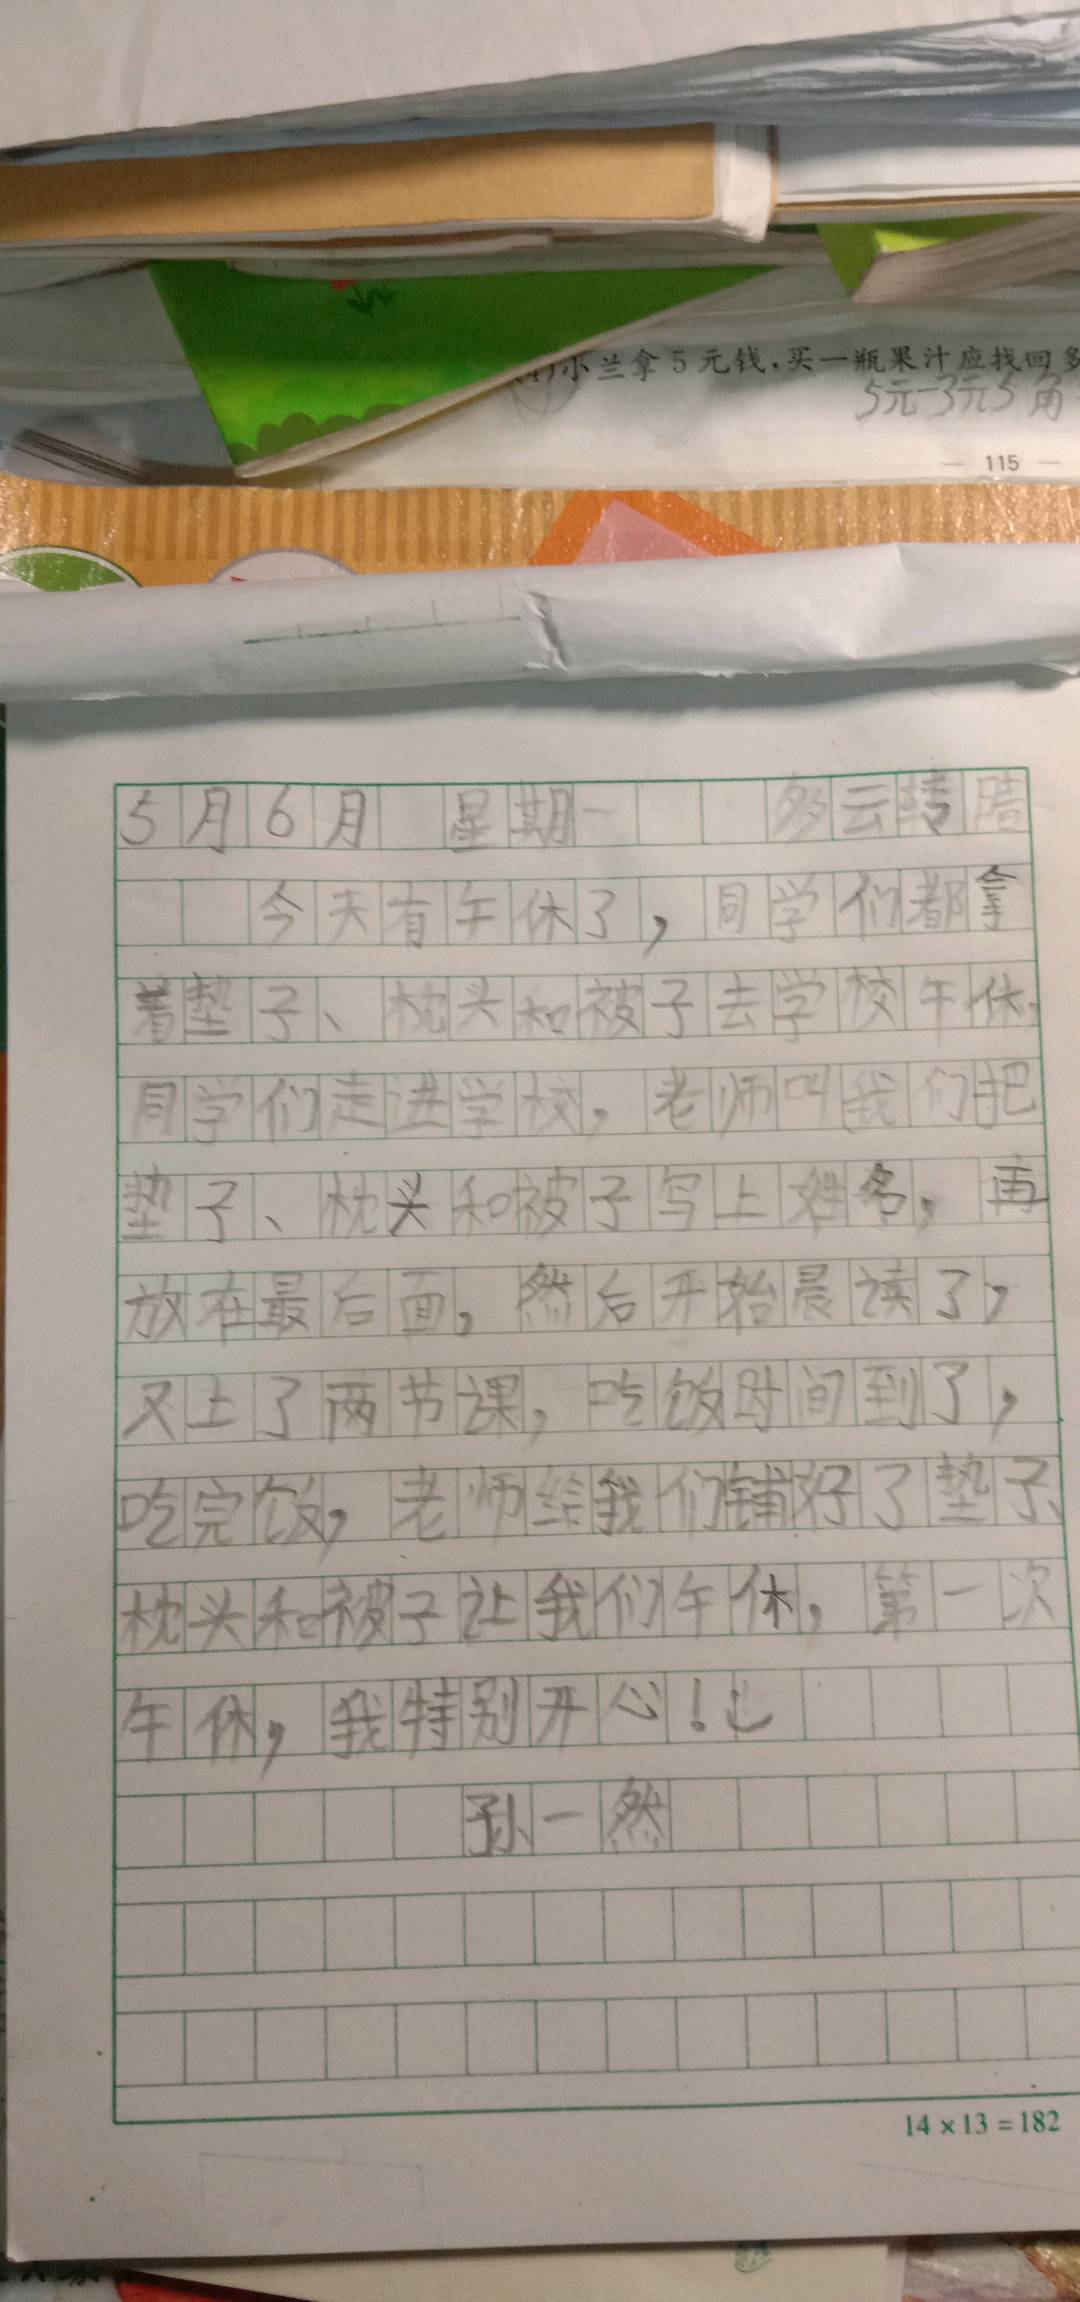 (4)小兰拿5元钱,买一瓶果汁应找回多
5元-3元5角
— 115 —
5月6月 星期一 多云转晴
今天有午休了，同学们都拿
着垫子、枕头和被子去学校午休，
同学们走进学校，老师叫我们把
垫子、枕头和被子写上姓名，再
放在最后面，然后开始晨读了，
又上了两节课，吃饭时间到了，
吃完饭，老师给我们铺好了垫子、
枕头和被子让我们午休，第一次
午休，我特别开心！
孙一然
14×13=182